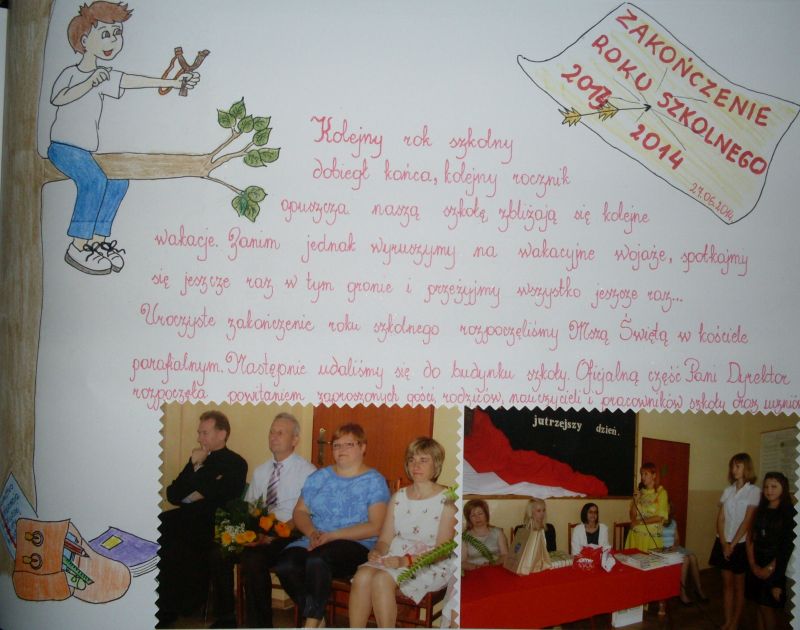 ZAKOŃCZENIE
ROKU SZKOLNEGO
2014
2014
27.06.2014
Kolejny rok szkolny
dobiegł końca, kolejny rocznik
opuszcza naszą szkołę, zbliżają się kolejne
wakacje. Zanim jednak wyruszymy na wakacyjne wojaże, spotkajmy
się jeszcze raz w tym gronie i przeżyjmy wszystko jeszcze raz...
Uroczyste zakończenie roku szkolnego rozpoczęliśmy Mszą Świętą w kościele
parafialnym. Następnie udaliśmy się do budynku szkoły. Oficjalną część Pani Dyrektor
rozpoczęła powitaniem zaproszonych gości, rodziców, nauczycieli i pracowników szkoły oraz uczniów
jutrzejszy dzień.